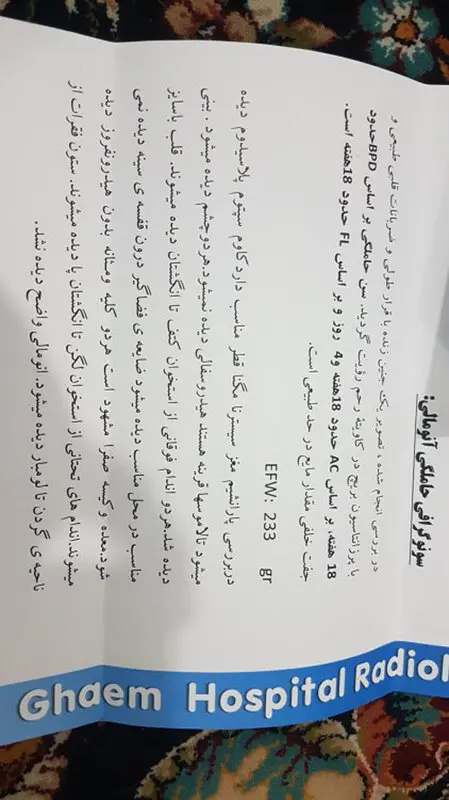 سونوگرافی حاملگی آنومالی:
در بررسی انجام شده ، تصویر یک جنین زنده با قرار طولی و ضربانات قلبی طبیعی و
با پرزانتاسیون بریچ در کاویتۀ رحم رؤیت گردید. سن حاملگی بر اساس BPDحدود
18 هفته، بر اساس AC حدود 18هفته و4 روز و بر اساس FL حدود 18هفته است.
جفت خلفی مقدار مایع در حد طبیعی است.
EFW: 233 gr
دربررسی پارانشیم مغز سیسترنا مگنا قطر مناسب دارد کاوم سپتوم پلاسیدوم دیده
میشود تالاموسها قرینه هستند هیدروسفالی دیده نمیشود.هردوچشم دیده میشود . بینی
دیده شد.هردو اندام فوقانی از استخوان کتف تا انگشتان دیده میشوند. قلب باسایز
مناسب در محل مناسب دیده میشود ضایعه ی فضاگیر درون قفسه ی سینه دیده نمی
شود.معده و کیسه صفرا مشهود است هردو کلیه ومثانه بدون هیدرونفروز دیده
میشوند.اندام های تحتانی از استخوان لگن تا انگشتان پا دیده میشوند. ستون فقرات از
ناحیه ی گردن تا لومبار دیده میشود. انومالی واضح دیده نشد.
Ghaem Hospital Radiol